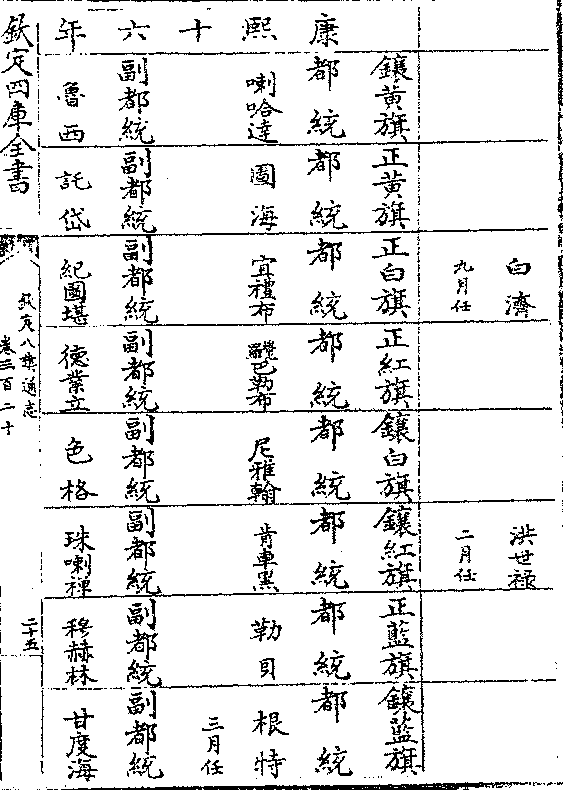 白濟 洪世祿
九月任 二月任
鑲黃旗 正黃旗 正白旗 正紅旗 鑲白旗 鑲紅旗 正藍旗 鑲藍旗
康熙十六年
都統 都統 都統 都統 都統 都統 都統 都統
喇哈達 圖海 宜禮布 覺羅巴勒布 尼雅翰 肯車黑 勒貝 根特
三月任
副都統 副都統 副都統 副都統 副都統 副都統 副都統 副都統
魯西 託岱 紀國堪 德業立 色格 珠喇禪 穆赫林 甘度海
欽定四庫全書
欽定八旗通志
卷三百二十
二十五